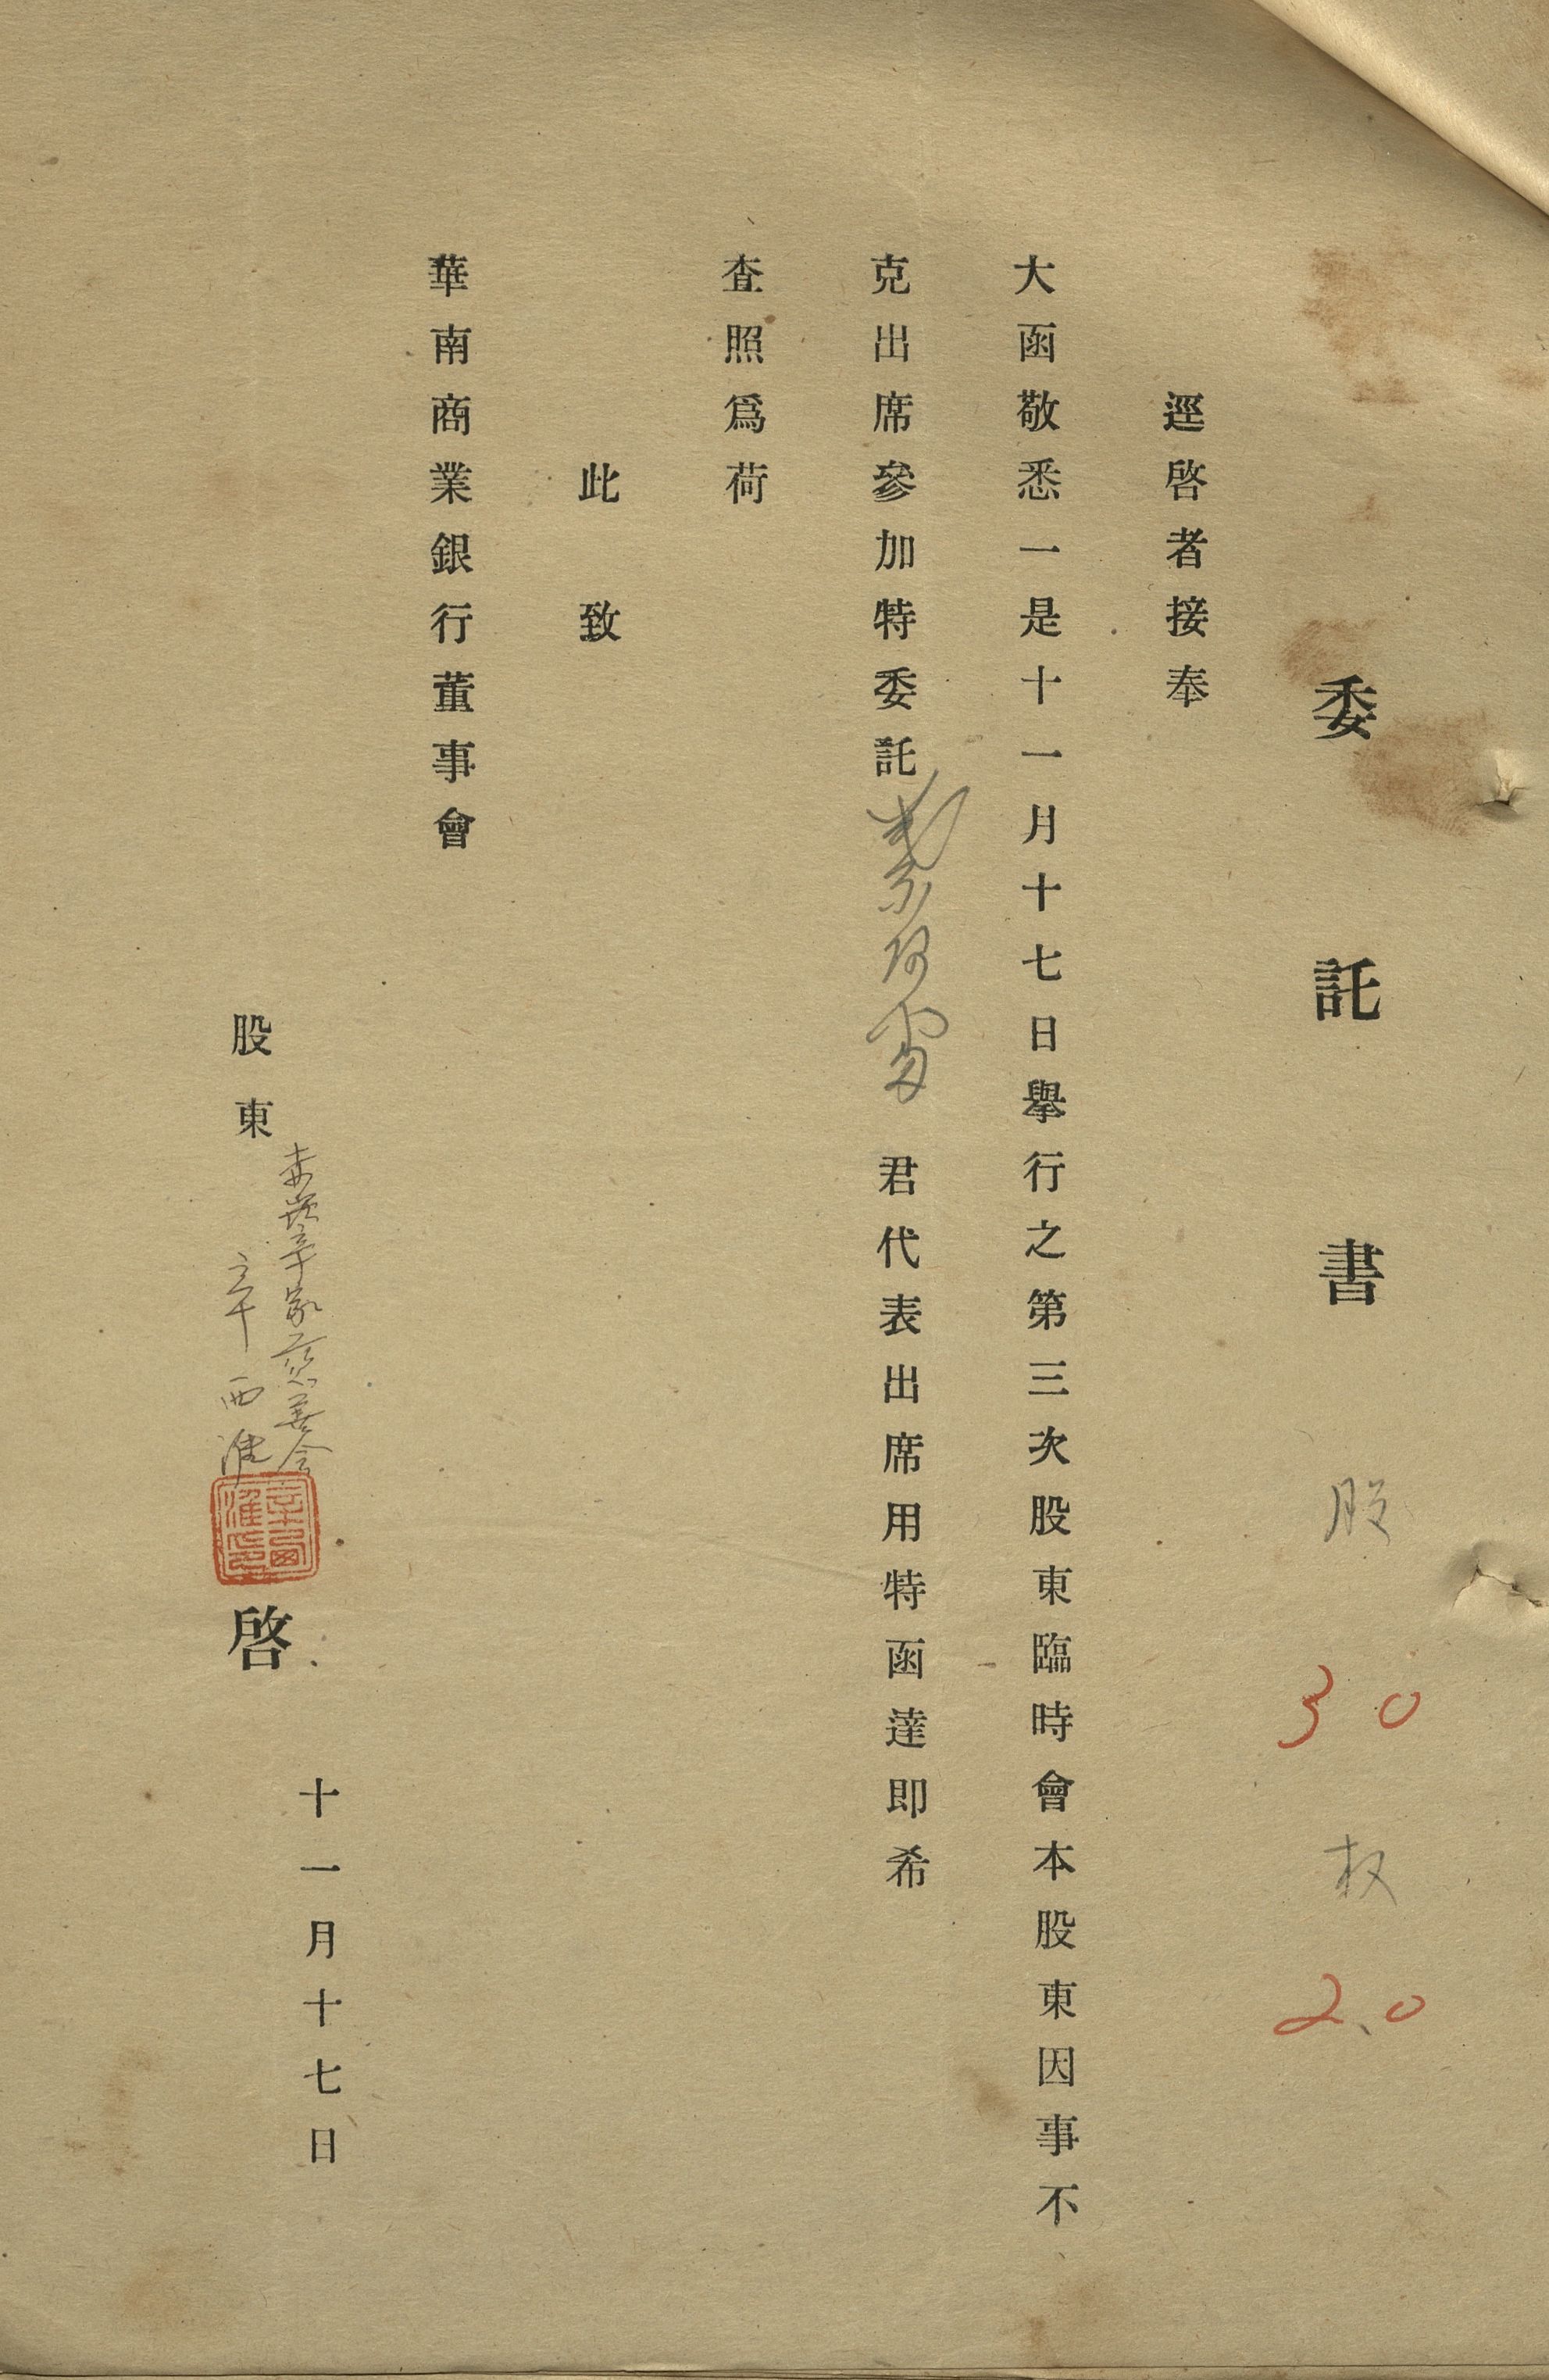 委託書 股 30 权 20
逕啓者接奉
大函敬悉一是十一月十七日舉行之第三次股東臨時會本股東因事不
克出席參加特委託 君代表出席用特函達即希
查照爲荷
此致
華南商業銀行董事會
十一月十七日
辛家慈善会
股東 辛西淮 啓
辛西淮印